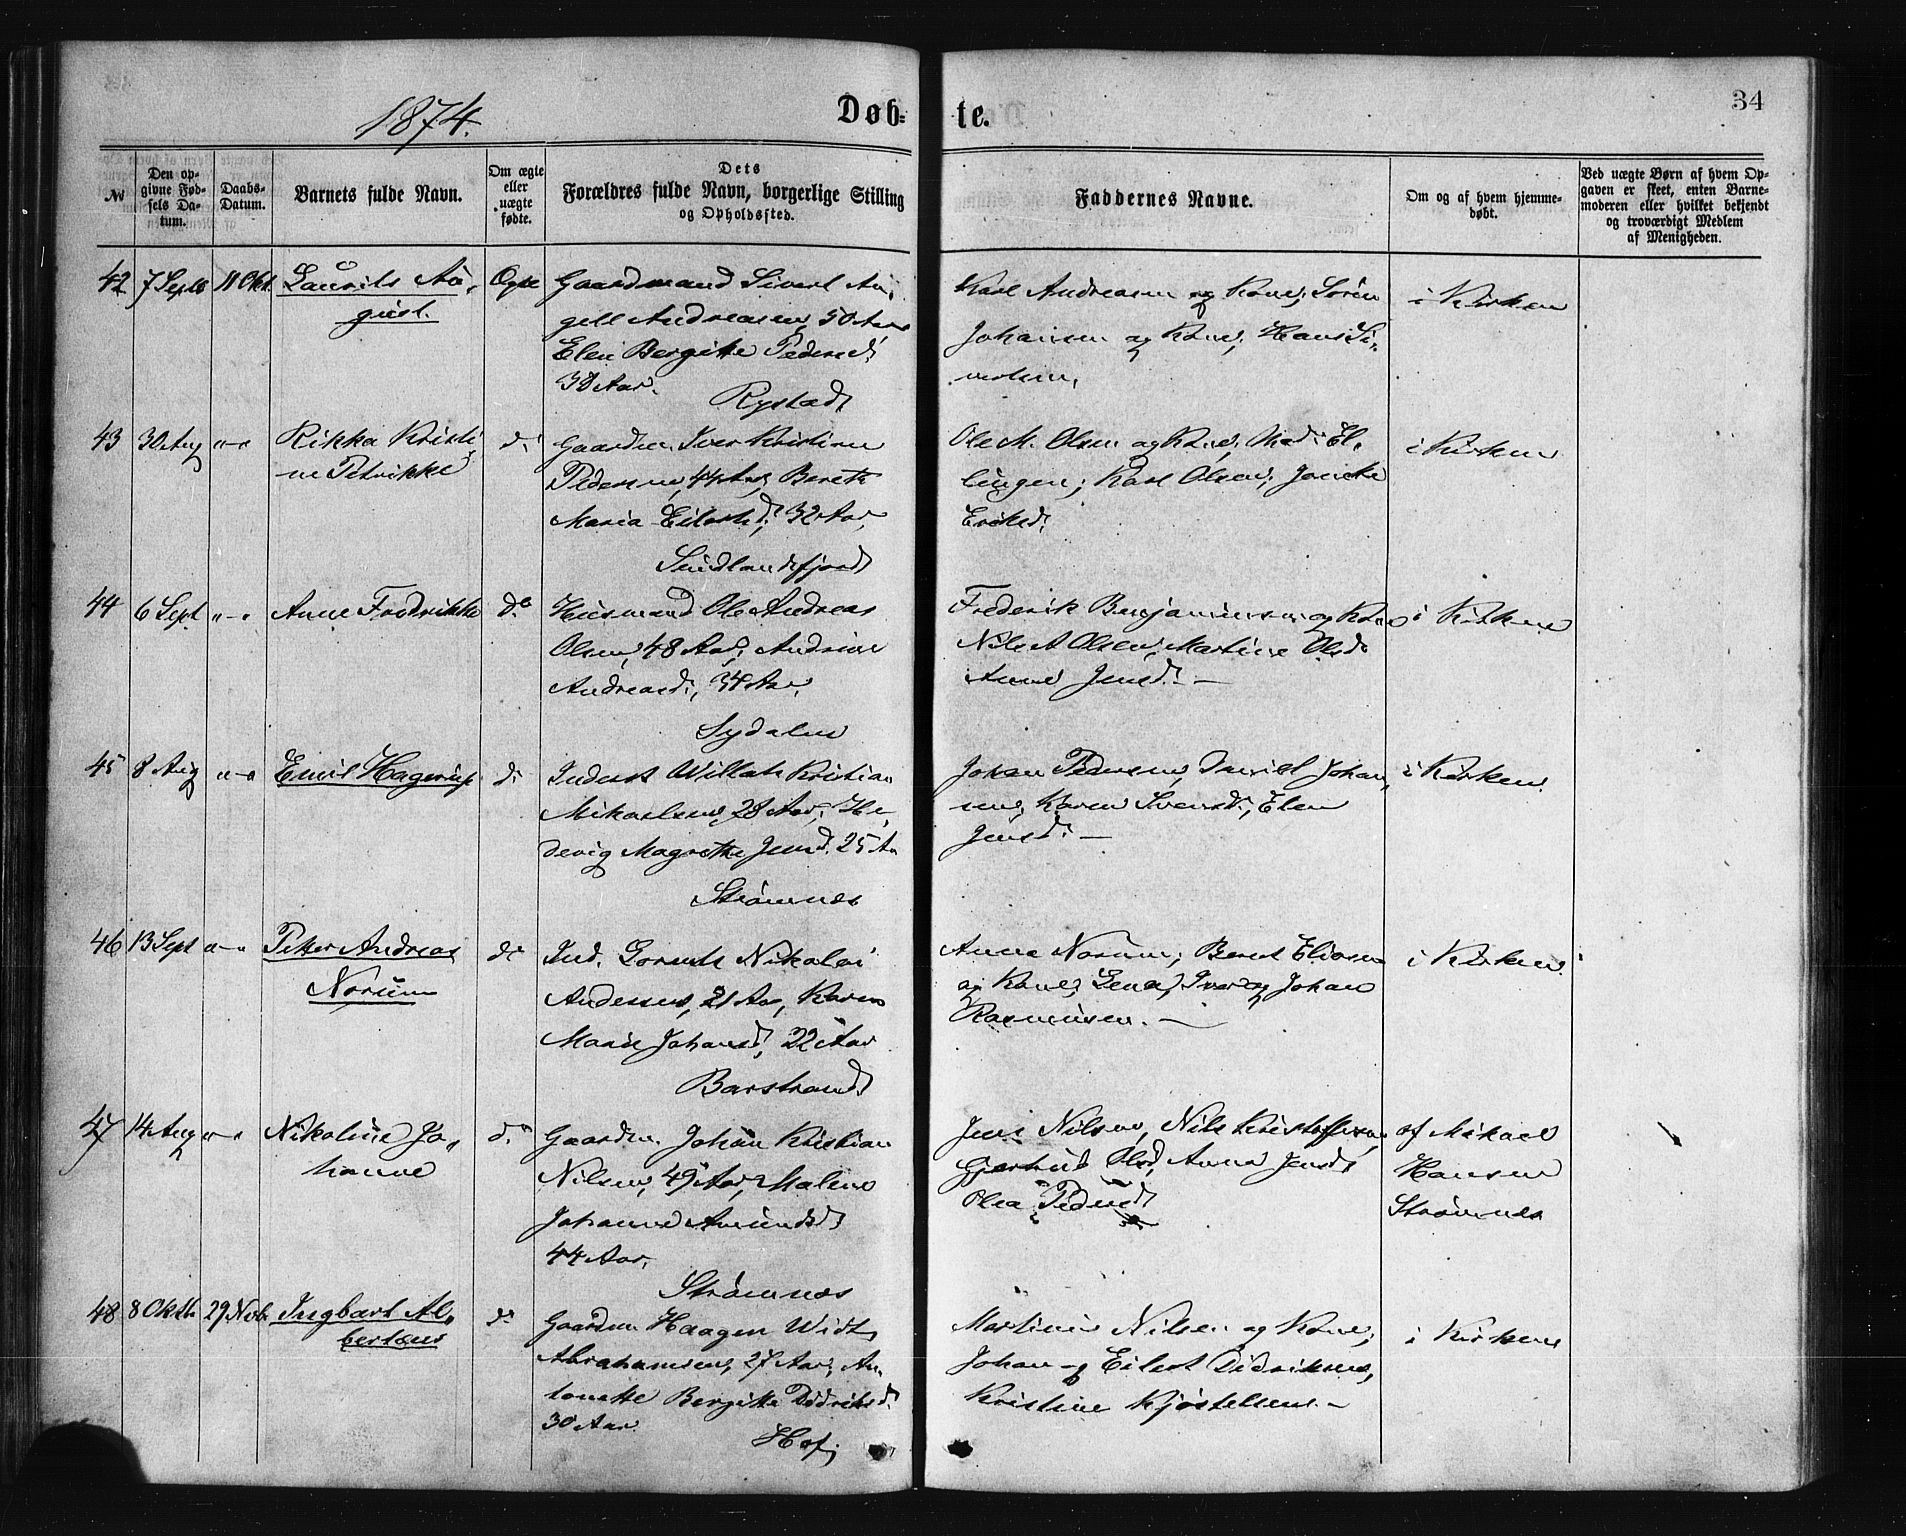 1874.
Døb=
te.
34
№
Den op-
givne Fød-
sels Da-
tum.
Daabs-
Datum.
Barnets fulde Navn.
Om ægte
eller
uægte
fødte.
Dets
Forældres fulde Navn, borgerlige Stilling
og Opholdssted.
Faddernes Navne.
Om og af hvem hjemme-
døbt.
Ved uægte Børn af hvem Op-
gaven er skeet, enten Barne-
moderen eller hvilket bekjendt
og troværdigt Medlem
af Menigheden.
42 7 Septb 11 Okt. Laurits Au-
gust.
Ægte
Gaardmand Sivert An-
gell Andreasen, 50 Aar
Elen Bergitte Pedersd:
38 Aar.
Rystad
Karl Andreasen og Kone; Søren
Johansen og Kone; Hans Si-
vertsen,
i Kirken
43 30 Aug "-" Rikka Kristi-
ne Petrikke
do
Gaardm. Iver Kristian
Pedersen, 44 Aar, Bereth
Maria Eilertsd; 32 Aar,
Sundlandsfjord
Ole M. Olsen og Kone; Mad: El-
lingsen; Karl Olsen;
Eriksd;
i Kirken
44 6 Sept "-" Anne Fredrikke do
Husmand Ole Andreas
Olsen, 48 Aar, Andrine
Andreasd:, 34 Aar,
Sydalen
Frederik Benjaminsen og Kone
Nils A Olsen, Martine Olsd:
Anne Jensd: –
i Kirken
45 8 Aug "-" Emil Hagerup do
Inderst Willats Kristian
Mikaelsen, 28 Aar, He-
devig Magrethe Jensd. 25 Aar
Strømnæs
Johan Pedersen, Daniel Johan-
sen, Karen Svensd:, Elen
Jensd: –
i Kirken
46 13 Sept "-" Petter Andreas
Norum
do
Ind. Gorents Nikolai
Andersen, 21 Aar, Karen
Marie Johansd, 22 Aar
Barstrand
Anna Norum; Berent Eliasen
og Kone; Lena, Iver og Johan
Rasmussen. –
i Kirken
47 14 Aug "-" Nikoline Jo-
hanne
do
Gaardm. Johan Kristian
Nilsen, 49 Aar, Malene
Johanne Amundsd
44 Aar.
Strømnæs
Jens Nilsen, Nils Kristoffersen,
Gjertrud Olsd, Anna Jensd
Olea Pedersd
af Mikael
Hansen
Strømnæs
48 8 Okth 29 Novb. Ingbart Al-
bertius
do
Gaardm. Haagen Widt
Abrahamsen, 27 Aar, An-
tonette Bergitte Didriksd:
30 Aar.
Hof,
Martinus Nilsen og Kone;
Johan og Eilert Didriksen,
Kristine Kjøstelsen. –
i Kirken